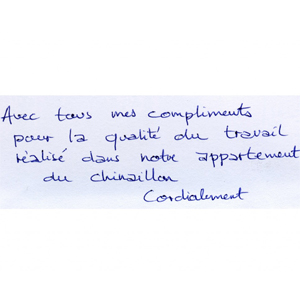 Avec tous mes compliments
pour la qualité du travail
réalisé dans notre appartement
du chinaillon
Cordialement